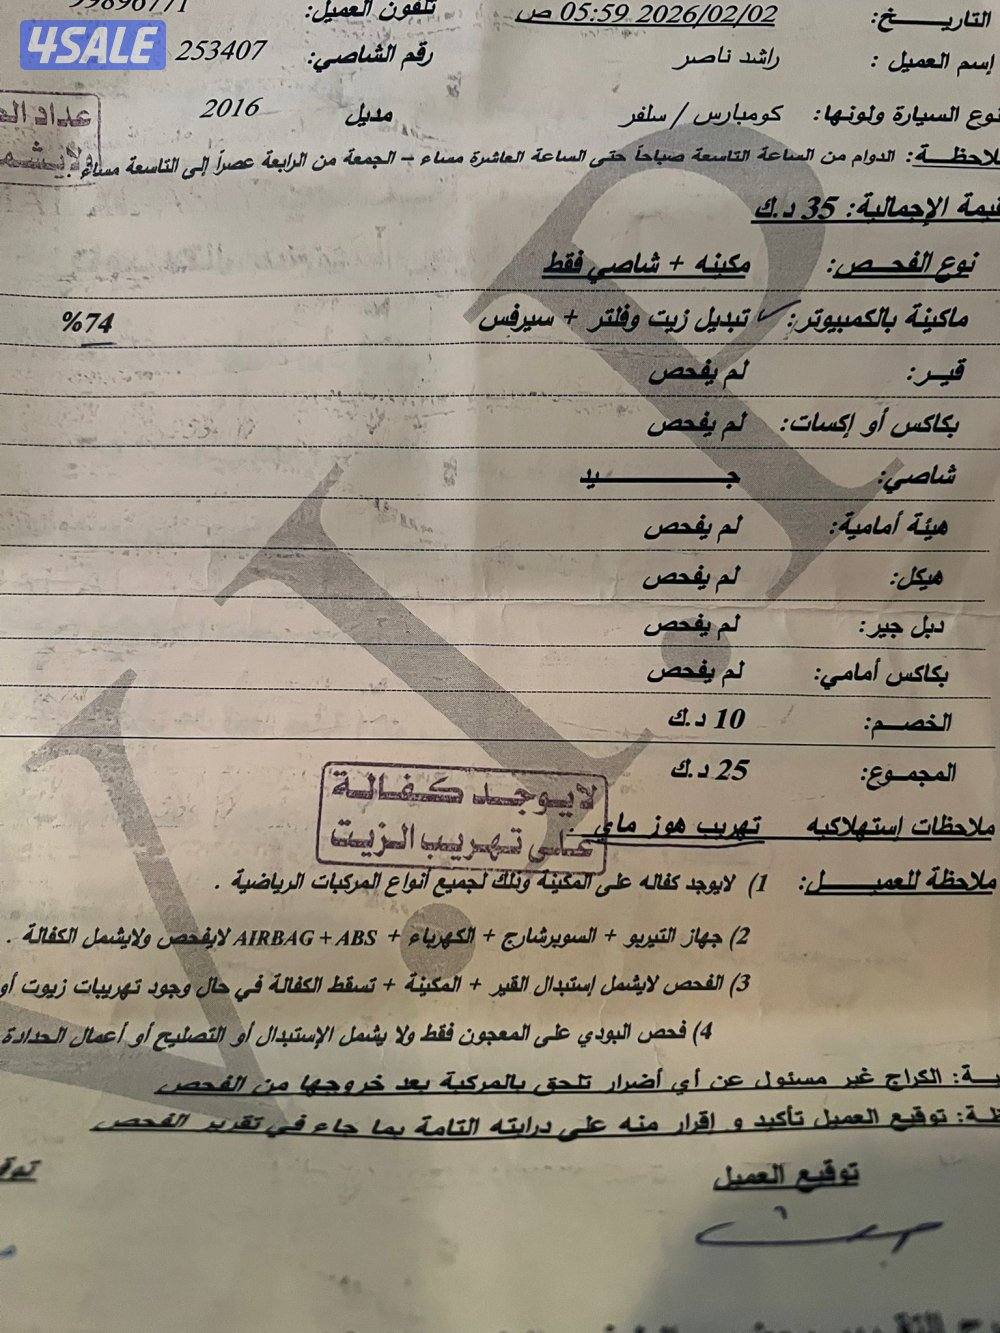 4SALE
التاريـــخ: 2026/02/02 05:59 ص تلفون العميل: 99896771
إسم العميل : راشد ناصر رقم الشاصي: 253407
نوع السيارة ولونها: كومبارس / سلفر مديل 2016
عداد
لايشم
ملاحظــة: الدوام من الساعة التاسعة صباحاً حتى الساعة العاشرة مساء – الجمعة من الرابعة عصراً إلى التاسعة مساء .
قيمة الإجمالية: 35 د.ك
نوع الفحــص: مكينه + شاصي فقط
ماكينة بالكمبيوتر: تبديل زيت وفلتر + سيرفس 74%
قيــر: لم يفحص
بكاكس أو إكسات: لم يفحص
شاصي: جــــــــيد
هيئة أمامية: لم يفحص
هيكل: لم يفحص
دبل جير: لم يفحص
بكاكس أمامي: لم يفحص
الخصــم: 10 د.ك
المجمــوع: 25 د.ك
لايوجـد كـفـالـة
على تهريب الزيت
ملاحظات إستهلاكيه تهريب هوز ماي .
ملاحظة للعميــــل: 1) لايوجد كفاله على المكينة وذلك لجميع أنواع المركبات الرياضية .
2) جهاز التيربو + السوبرشارج + الكهرباء + AIRBAG + ABS لايفحص ولايشمل الكفالة .
3) الفحص لايشمل إستبدال القير + المكينة + تسقط الكفالة في حال وجود تهريبات زيوت أو
4) فحص البودي على المعجون فقط ولا يشمل الإستبدال أو التصليح أو أعمال الحدادة
ـة: الكراج غير مسئول عن أي أضرار تلحق بالمركبة بعد خروجها من الفحص
ظة: توقيع العميل تأكيد و إقرار منه على درايته التامة بما جاء في تقرير الفحص
توقيع العميل توقي